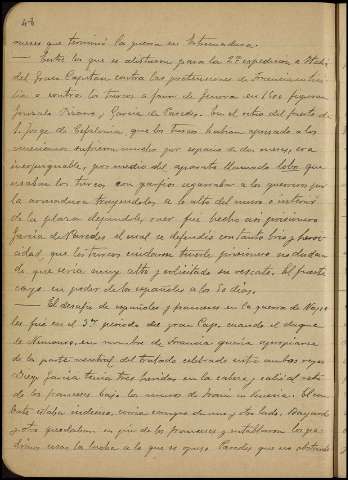 46
meses que terminó la guerra en Extremadura.
— Entre los que se alistaron para la 2ª expedicion a Italia
del Gran Capitan contra las pretensiones de Francia en
o contra los turcos a favor de en 1500 figuran
Gonzalo Pizarro y Garcia de Paredes. En el sitio del fuerte de
S. Jorge de Cefalonia, que los turcos habian apresado a los
venecianos sufrieron mucho por espacio de dos meses, era
inexpugnable, por medio del aparato llamado lobo que
usaban los turcos, con garfios agarraban a los guerreros por
la armadura trayendolos a lo alto del muro o interior
de la plaza dejandolos caer fué hecho asi prisionero
Garcia de Paredes el cual se defendió con tanto brio y feroci-
cidad, que los turcos cuidaron tenerle prisionero no dudan
de que seria muy alto y solicitado su rescate. El fuerte
cayó en poder de los españoles a los 50 dias.
— El desafio de españoles y franceses en la guerra de Napo
les fué en el 3er periodo del Gran Cap. cuando el duque
de Nemours, en nombre de Francia queria apropiarse
de la parte neutral del tratado celebrado entre ambos reyes
Diego Garcia tenia tres heridas en la cabeza y salió al reto
de los franceses bajo los muros de Trani en Com
bate estaba indeciso, varia campo de uno y otro lado, Bayardo
y otro quedaban en pie de los franceses y entablaron los pa
drinos cesar la lucha a lo que se opuso Paredes que no obstante